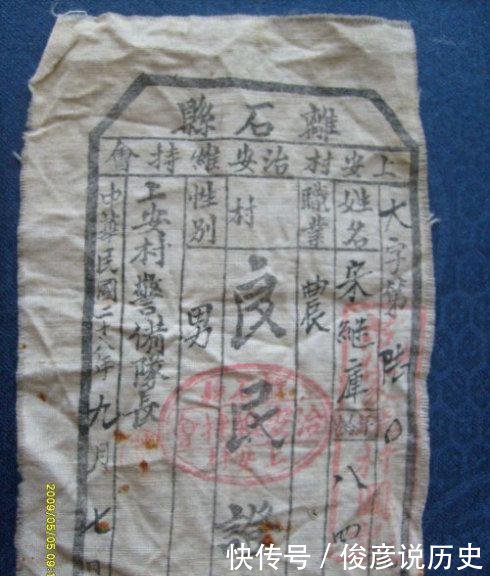 離石縣
上安村治安維持會
大字第陸0
姓名 宋継庫 八四
職業 農
村 良民證
性別 男
上安村警備隊長
中華民國二十八年九月七日
2009/05/05 09:1
快传号 / 俊彦说历史